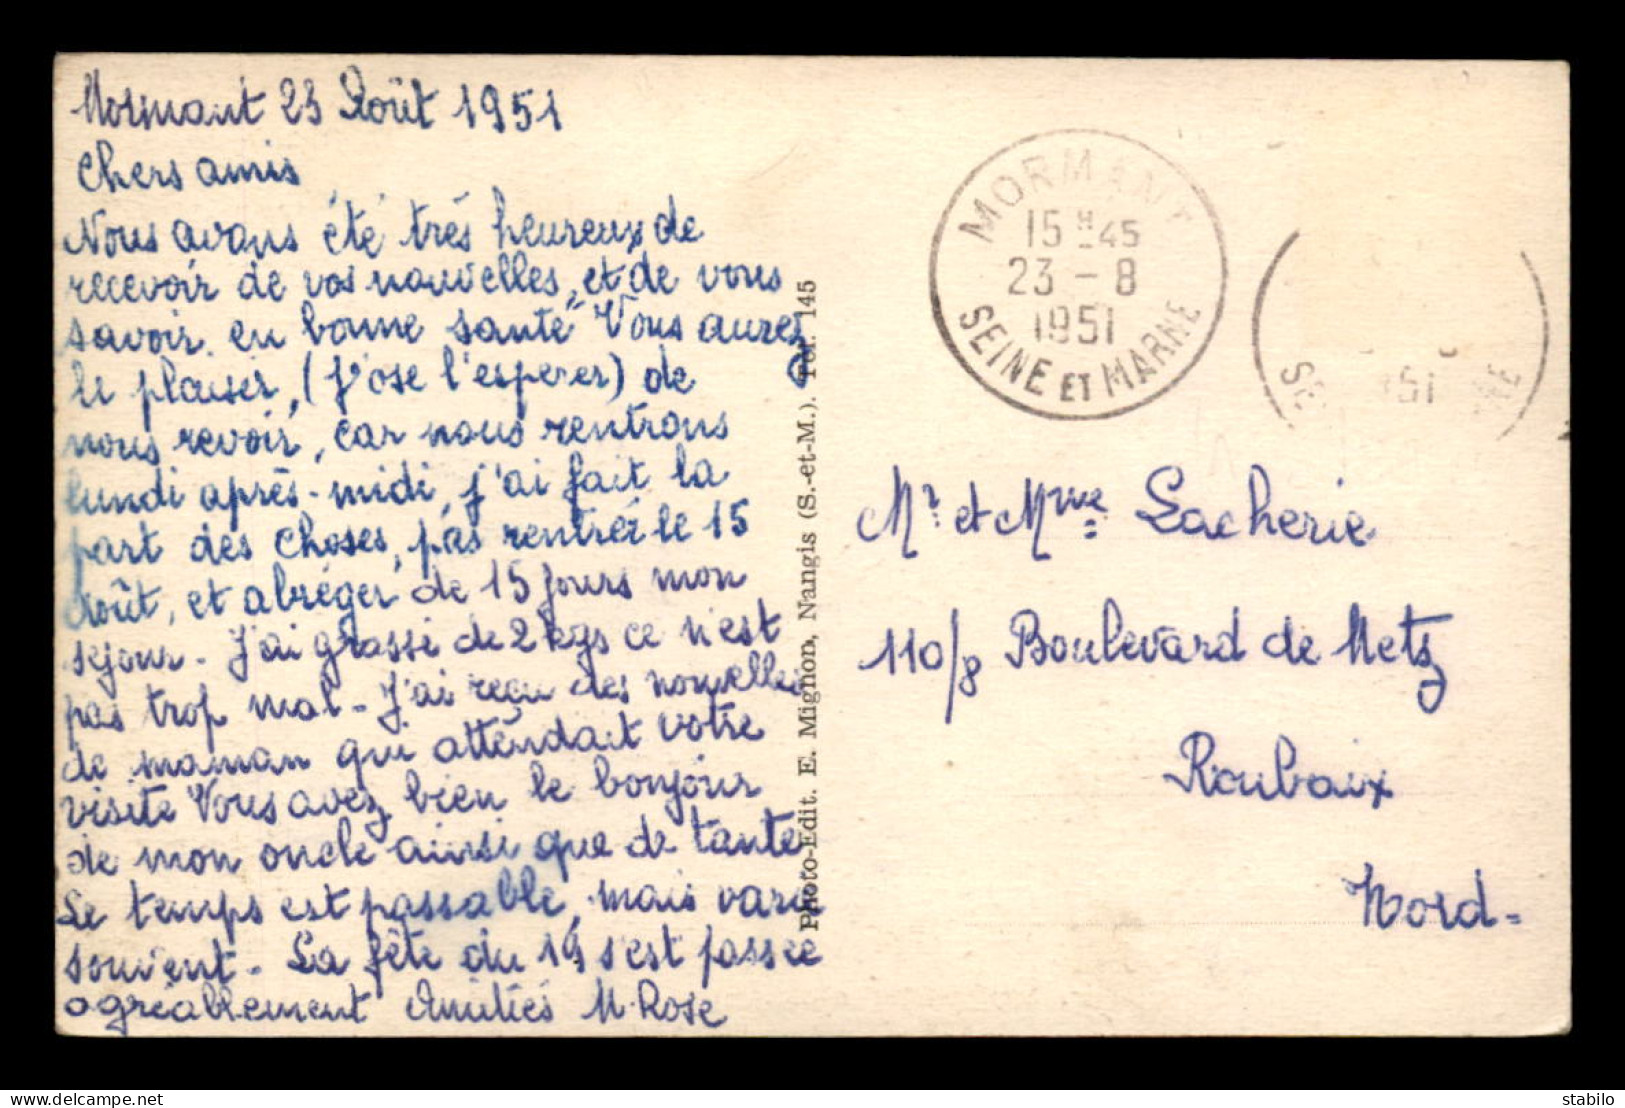 Mormant 23 Août 1951
Chers amis
Nous avons été très heureux de
recevoir de vos nouvelles, et de vous
savoir en bonne santé Vous aurez
le plaisir, (j'ose l'esperer) de
nous revoir, car nous rentrons
lundi après-midi, j'ai fait la
part des choses, pas rentrée le 15
Août, et abréger de 15 jours mon
sejour. J'ai grassi de 2 kgs ce n'est
pas trop mal. J'ai reçu des nouvelles
de maman qui attendait votre
visite Vous avez bien le bonjour
de mon oncle ainsi que de tante
Le temps est passable, mais varie
souvent. La fête du 19 s'est passée
agréablement Amitiés M. Rose
Photo-Edit. E. Mignon, Nangis (S.-et-M.). Tél. 145
MORMANT
15 H 45
23 - 8
1951
SEINE ET MARNE
Mr et Mme Lacherie
110/8 Boulevard de Metz
Roubaix
Nord
delcampe.net
stabilo